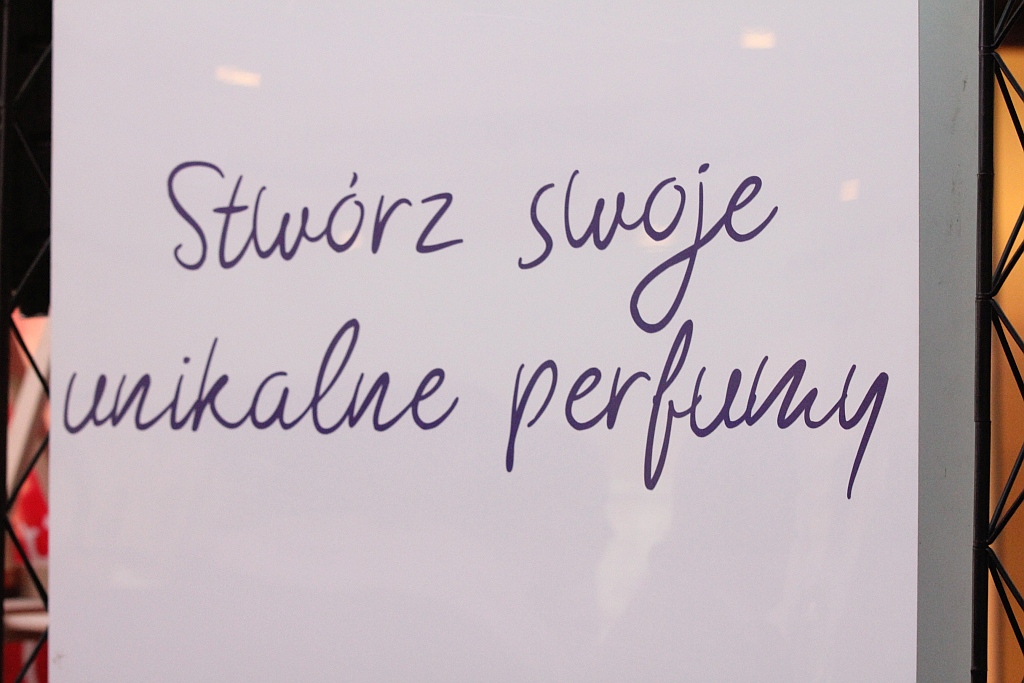 Stwórz swoje
unikalne perfumy